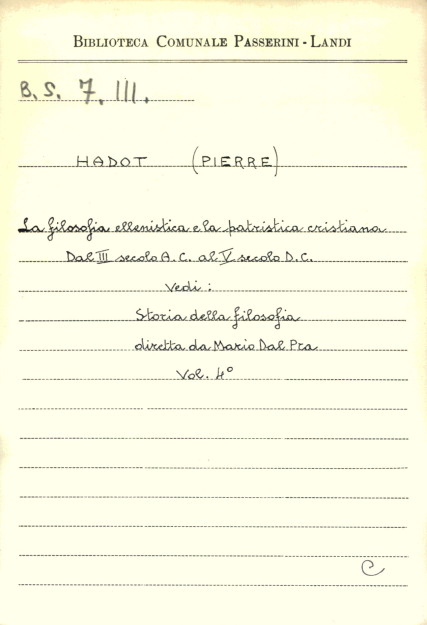 BIBLIOTECA COMUNALE PASSERINI - LANDI
B. S. 7. III.
HADOT (PIERRE)
La filosofia ellenistica e la patristica cristiana
Dal III secolo A. C. al V secolo D. C.
Vedi :
Storia della filosofia
diretta da Mario Dal Pra
Vol. 4°
C